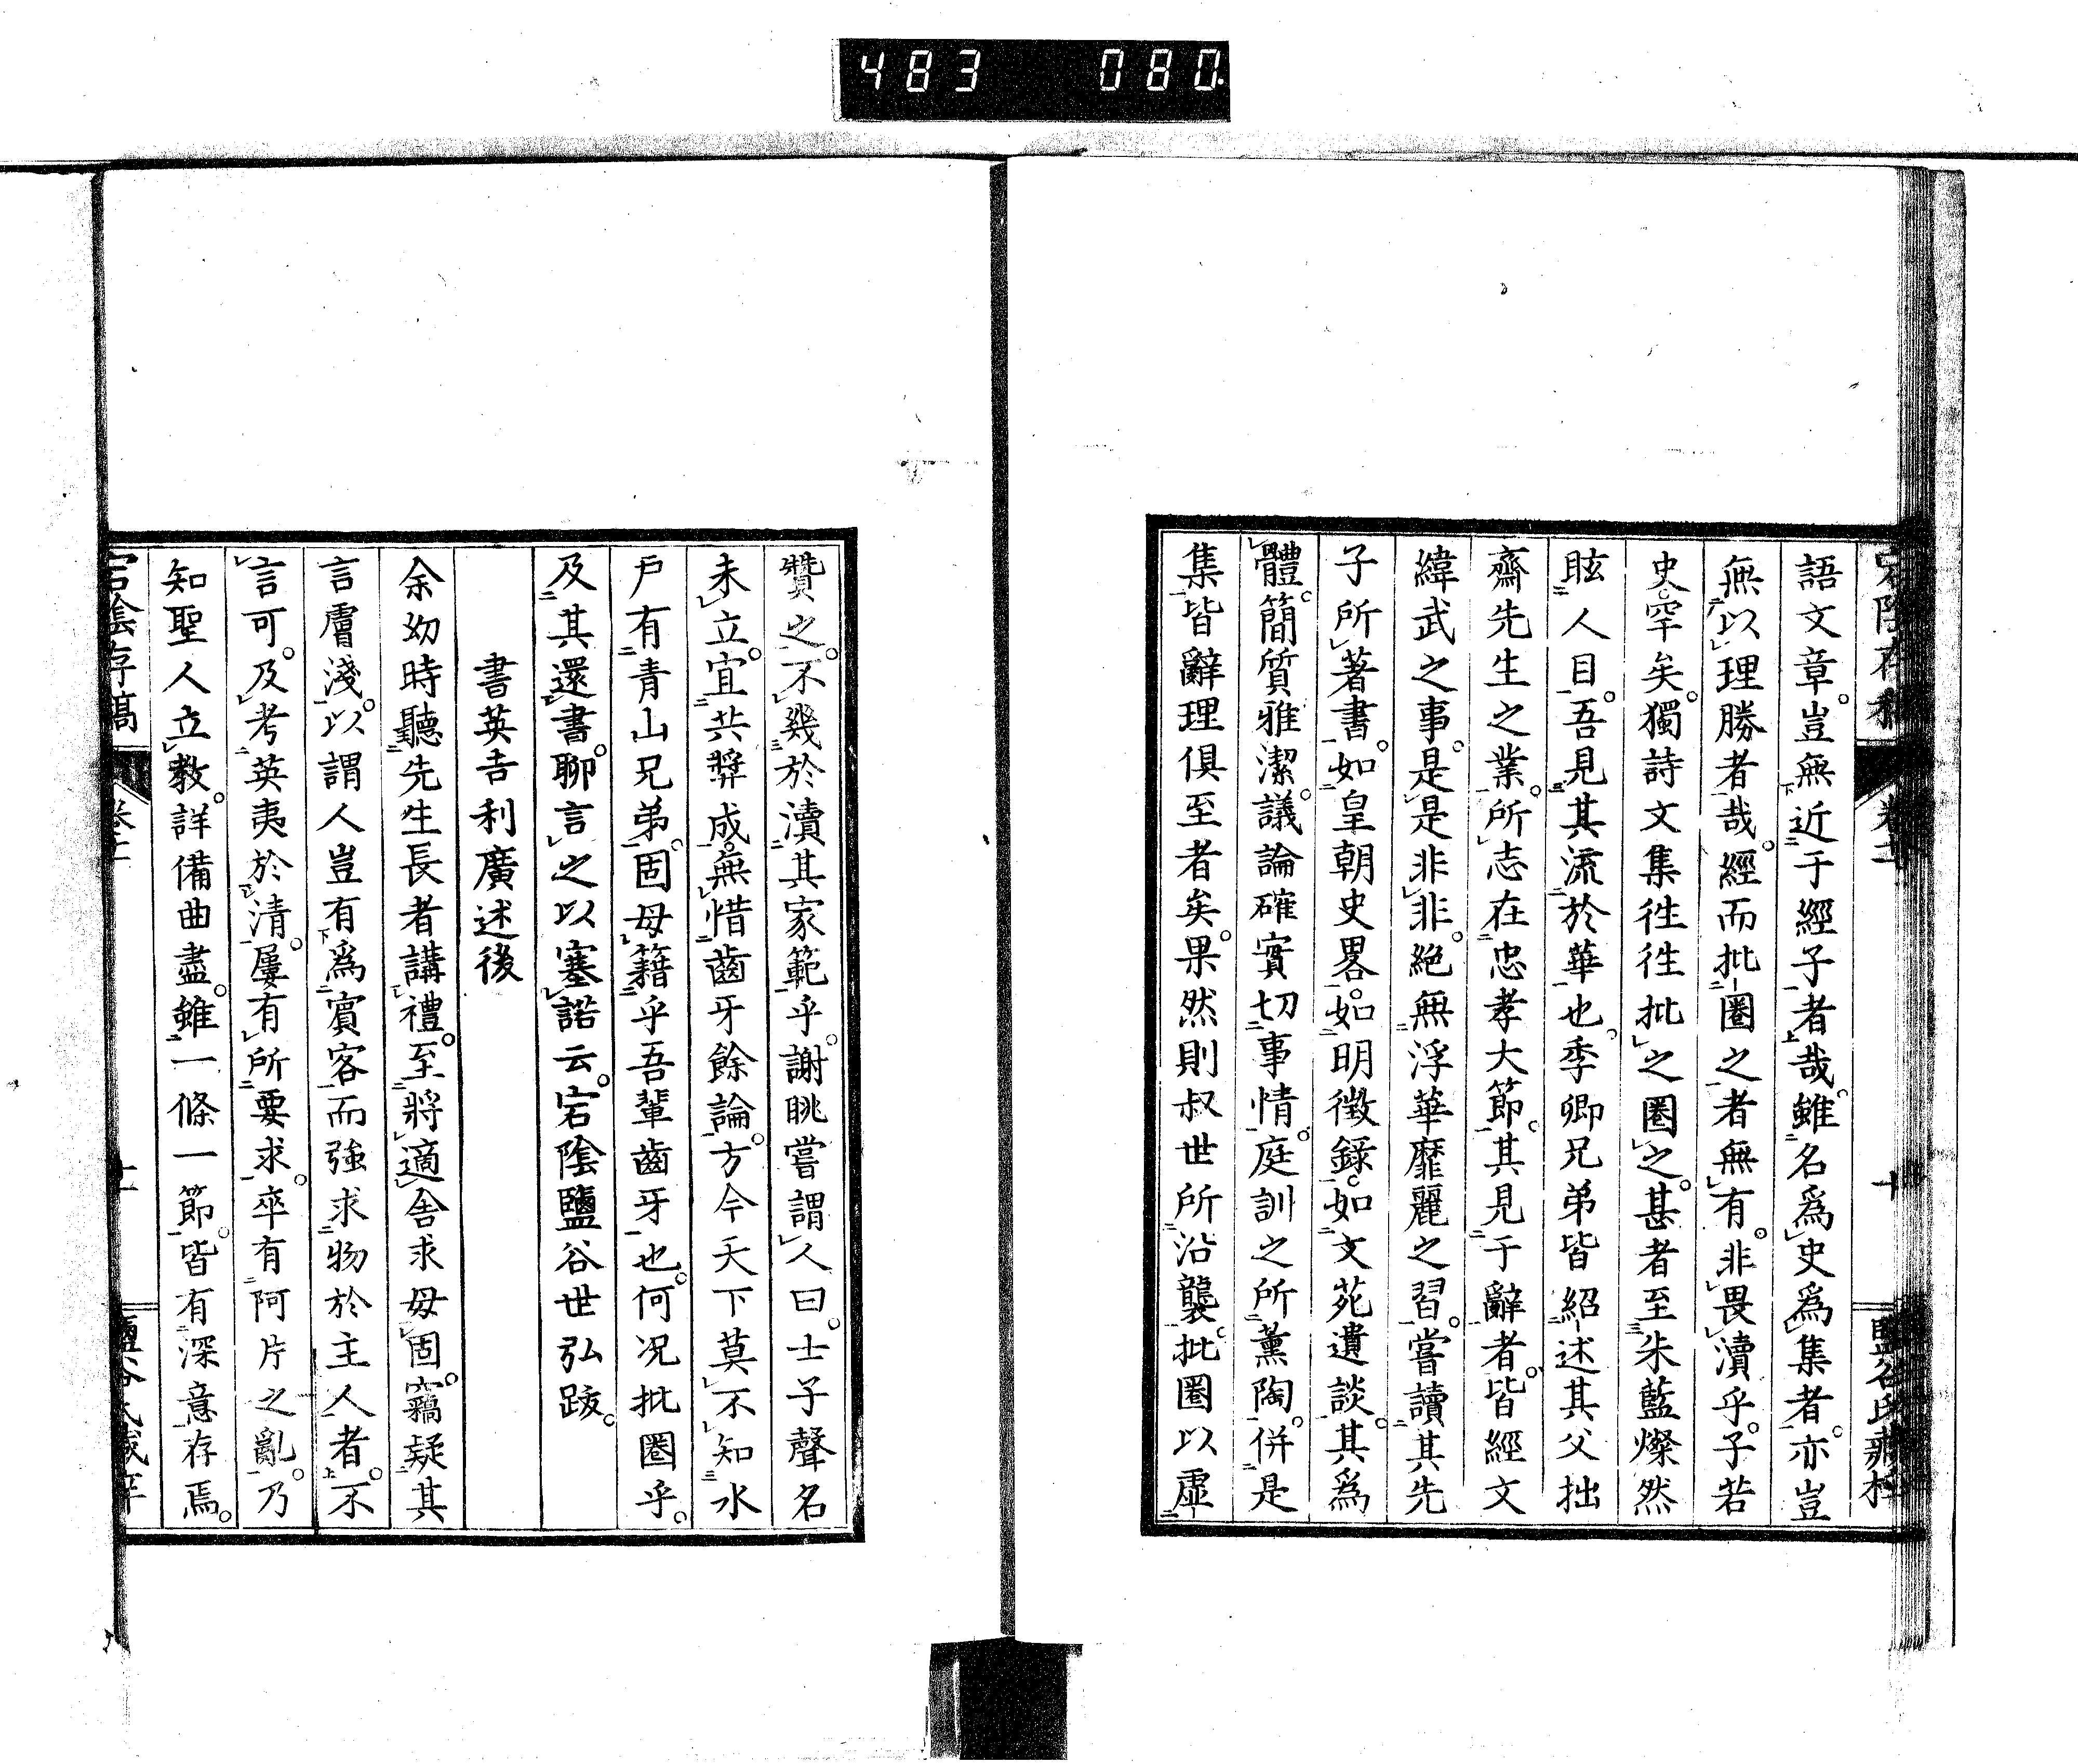 483 080
語文章。豈無近于經子者哉。雖名爲史爲集者。亦豈
無以理勝者哉。經而批圈之者無有。非畏瀆乎。子若
史。罕矣。獨詩文集徃徃批之圈之。甚者至朱藍燦然
眩人目。吾見其流於華也。季卿兄弟皆紹述其父拙
齋先生之業。所志在忠孝大節。其見于辭者。皆經文
緯武之事。是是非非。絕無浮華靡麗之習。嘗讀其先
子所著書。如皇朝史畧。如明徵錄。如文苑遺談。其爲
體。簡質雅潔。議論確實切事情。庭訓之所薰陶。併是
集皆辭理俱至者矣。果然則叔世所沿襲。批圈以虛
贊之。不幾於瀆其家範乎。謝眺嘗謂人曰。士子聲名
未立。宜共奬成。無惜齒牙餘論。方今天下莫不知水
戶有青山兄弟。固毋籍乎吾輩齒牙也。何况批圈乎。
及其還書。聊言之以塞諾云。宕陰鹽谷世弘跋。
書英吉利廣述後
余幼時聽先生長者講禮。至將適舍求毋固。竊疑其
言膚淺。以謂人豈有爲賓客而強求物於主人者。不
言可。及考英夷於清。屢有所要求。卒有阿片之亂。乃
知聖人立教。詳備曲盡。雖一條一節。皆有深意存焉。
宕陰存稿 卷二 十一 鹽谷氏藏